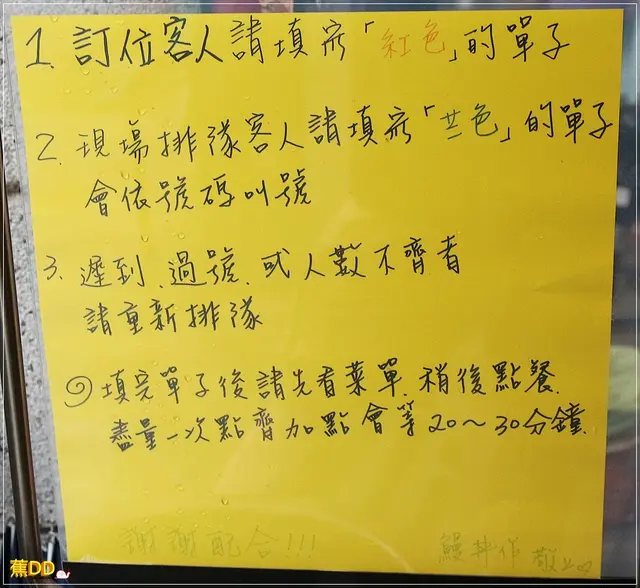 1. 訂位客人請填寫「紅色」的單子
2. 現場排隊客人請填寫「芒色」的單子
會依號碼叫號
3. 遲到、過號、或人數不齊者
請重新排隊
◎填完單子後請先看菜單、稍後點餐、
盡量一次點齊加點會等20~30分鐘
謝謝配合!!!
鰻丼作 敬上
蕉DD